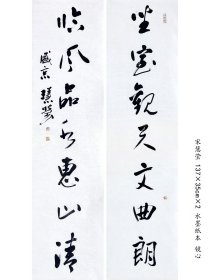 坐室觀天文曲朗
临风品水惠山清
盛京 慧莹
宋慧莹 137×35cm×2 水墨纸本 镜心